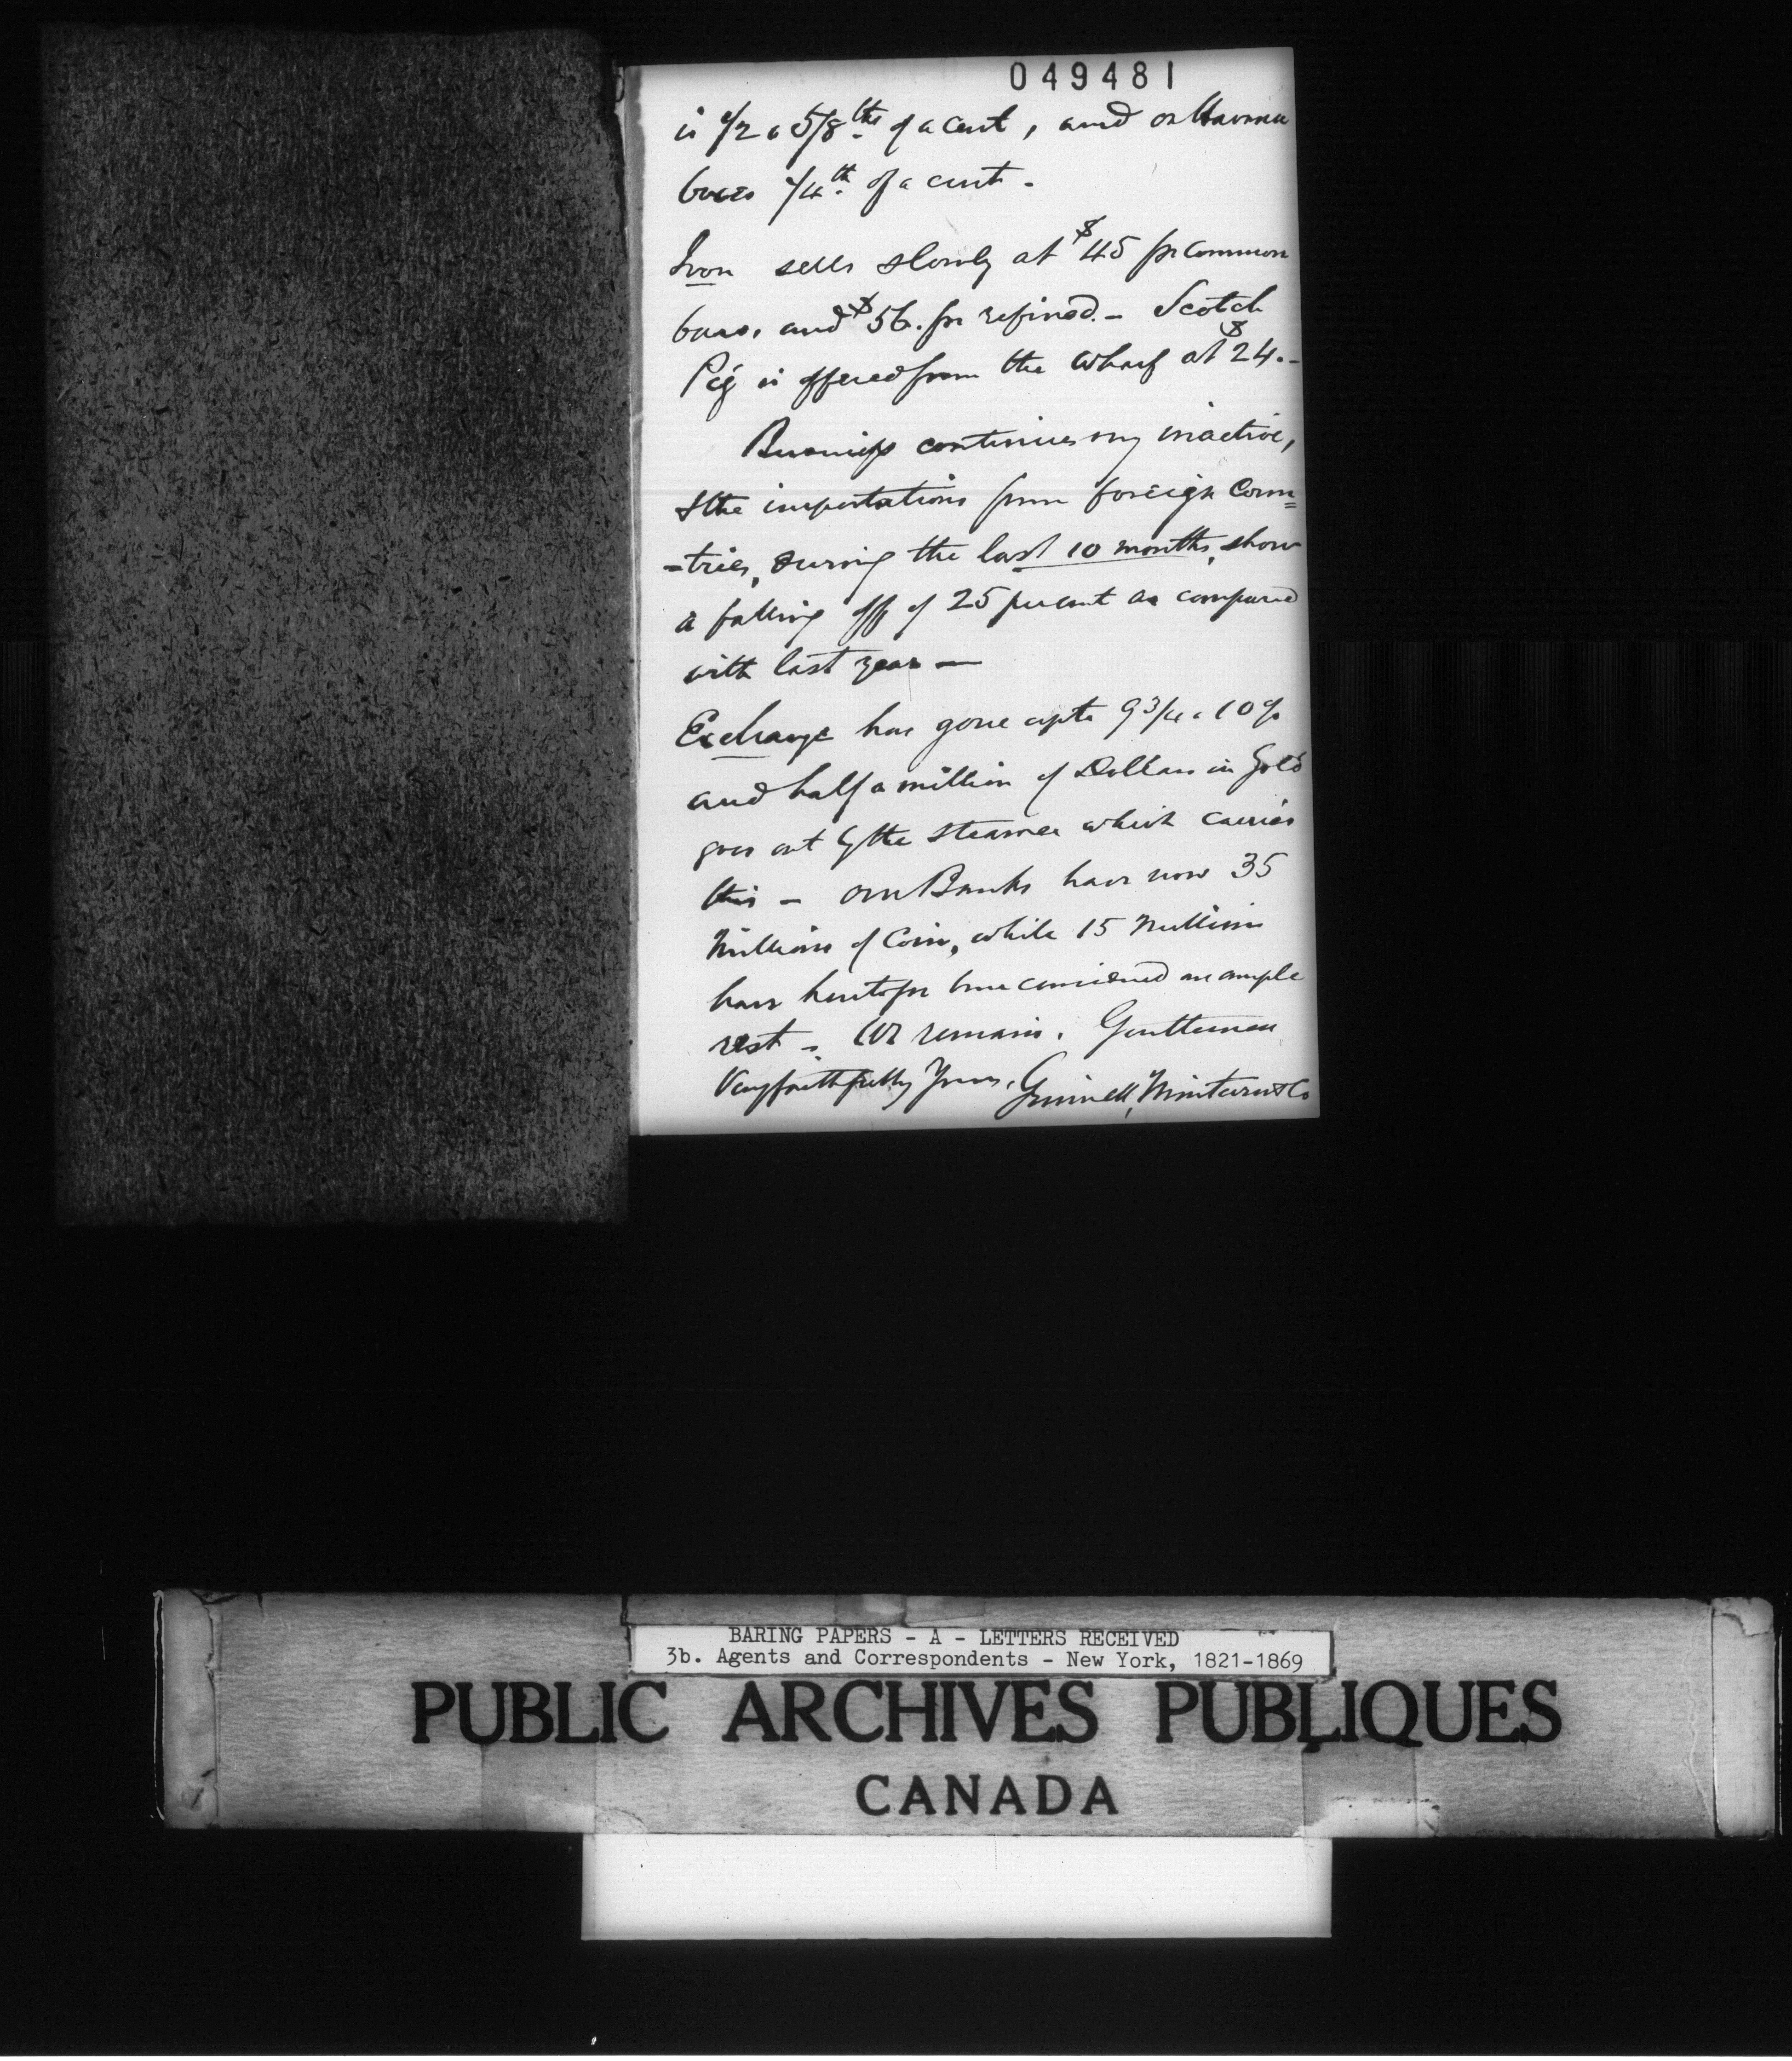 049481
is 1/2 a 5/8ths of a cent, and on Havana
boxes 1/4th of a cent.
Iron sells slowly at $45 for common
bars, and $56. for refined. - Scotch
Pig is offered from the wharf at $24. -
Business continues very inactive,
& the importations from foreign Coun=
-tries, during the last 10 months, show
a falling off of 25 per cent as compared
with last year —
Exchange has gone up to 9 3/4 a 10 %
and half a million of Dollars in Gold
goes out by the steamer which carries
this - our Banks have now 35
Millions of Coin, while 15 Millions
have heretofore been considered an ample
rest -. We remain, Gentlemen
Very faithfully Yours, Grinnell, Minturn & Co
BARING PAPERS - A - LETTERS RECEIVED
3b. Agents and Correspondents - New York, 1821-1869
PUBLIC ARCHIVES PUBLIQUES
CANADA